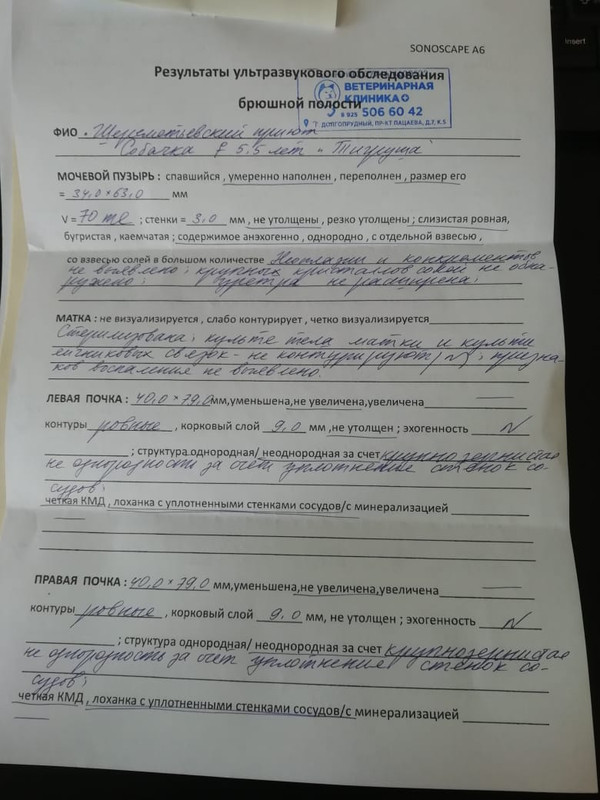 insert
SONOSCAPE A6
Результаты ультразвукового обследования
ВЕТЕРИНАРНАЯ
КЛИНИКА
брюшной полости
8 925 506 60 42
Г. ДОЛГОПРУДНЫЙ, ПР-КТ ПАЦАЕВА, Д.7, К.5
ФИО Шереметьевский приют
Собачка f 5,5 лет "Тигруша"
МОЧЕВОЙ ПУЗЫРЬ : спавшийся , умеренно наполнен , переполнен , размер его
= 34,0 × 63,0 мм
V = 70 ml ; стенки = 3,0 мм , не утолщены , резко утолщены ; слизистая ровная,
бугристая , каемчатая ; содержимое анэхогенно , однородно , с отдельной взвесью ,
со взвесью солей в большом количестве Неоплазии и конкрементов
не выявлено ; крупных кристаллов солей не обна-
ружено ; уретра не расширена ;
МАТКА : не визуализируется , слабо контурирует , четко визуализируется
Стерилизована ; культя тела матки и культи
яичниковых связок - не контурируют /N/ ; призна-
ков воспаления не выявлено.
ЛЕВАЯ ПОЧКА : 40,0 × 79,0 мм,уменьшена,не увеличена,увеличена
контуры ровные , корковый слой 9,0 мм ,не утолщен ; эхогенность N
; структура однородная/ неоднородная за счет крупнозернистая
не однородности за счет уплотнение стенок со-
судов ;
четкая КМД , лоханка с уплотненными стенками сосудов/с минерализацией
ПРАВАЯ ПОЧКА : 40,0 × 79,0 мм,уменьшена,не увеличена,увеличена
контуры ровные , корковый слой 9,0 мм, не утолщен ; эхогенность N
; структура однородная/ неоднородная за счет крупнозернистая
не однородность за счет уплотнение стенок со-
судов ;
четкая КМД , лоханка с уплотненными стенками сосудов/с минерализацией